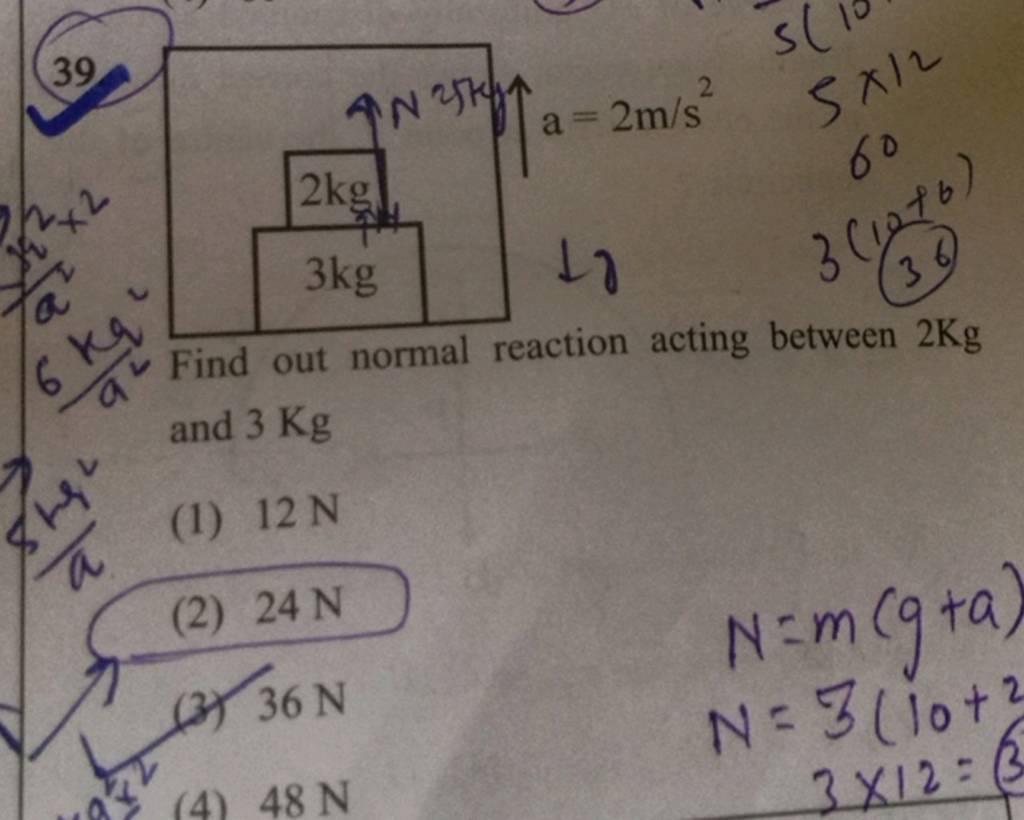 39
N
a = 2m/s²
2kg
3kg
g
5(10
5 × 12
60
3(10+6)
36
Find out normal reaction acting between 2Kg
and 3 Kg
(1) 12 N
(2) 24 N
(3) 36 N
(4) 48 N
N = m(g+a)
N = 3(10+2
3 × 12 = 3